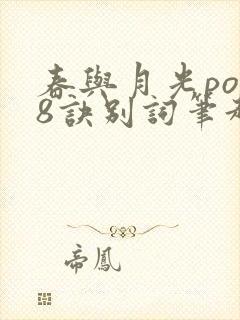 春與月光po
8訣別詞筆
帝鳳